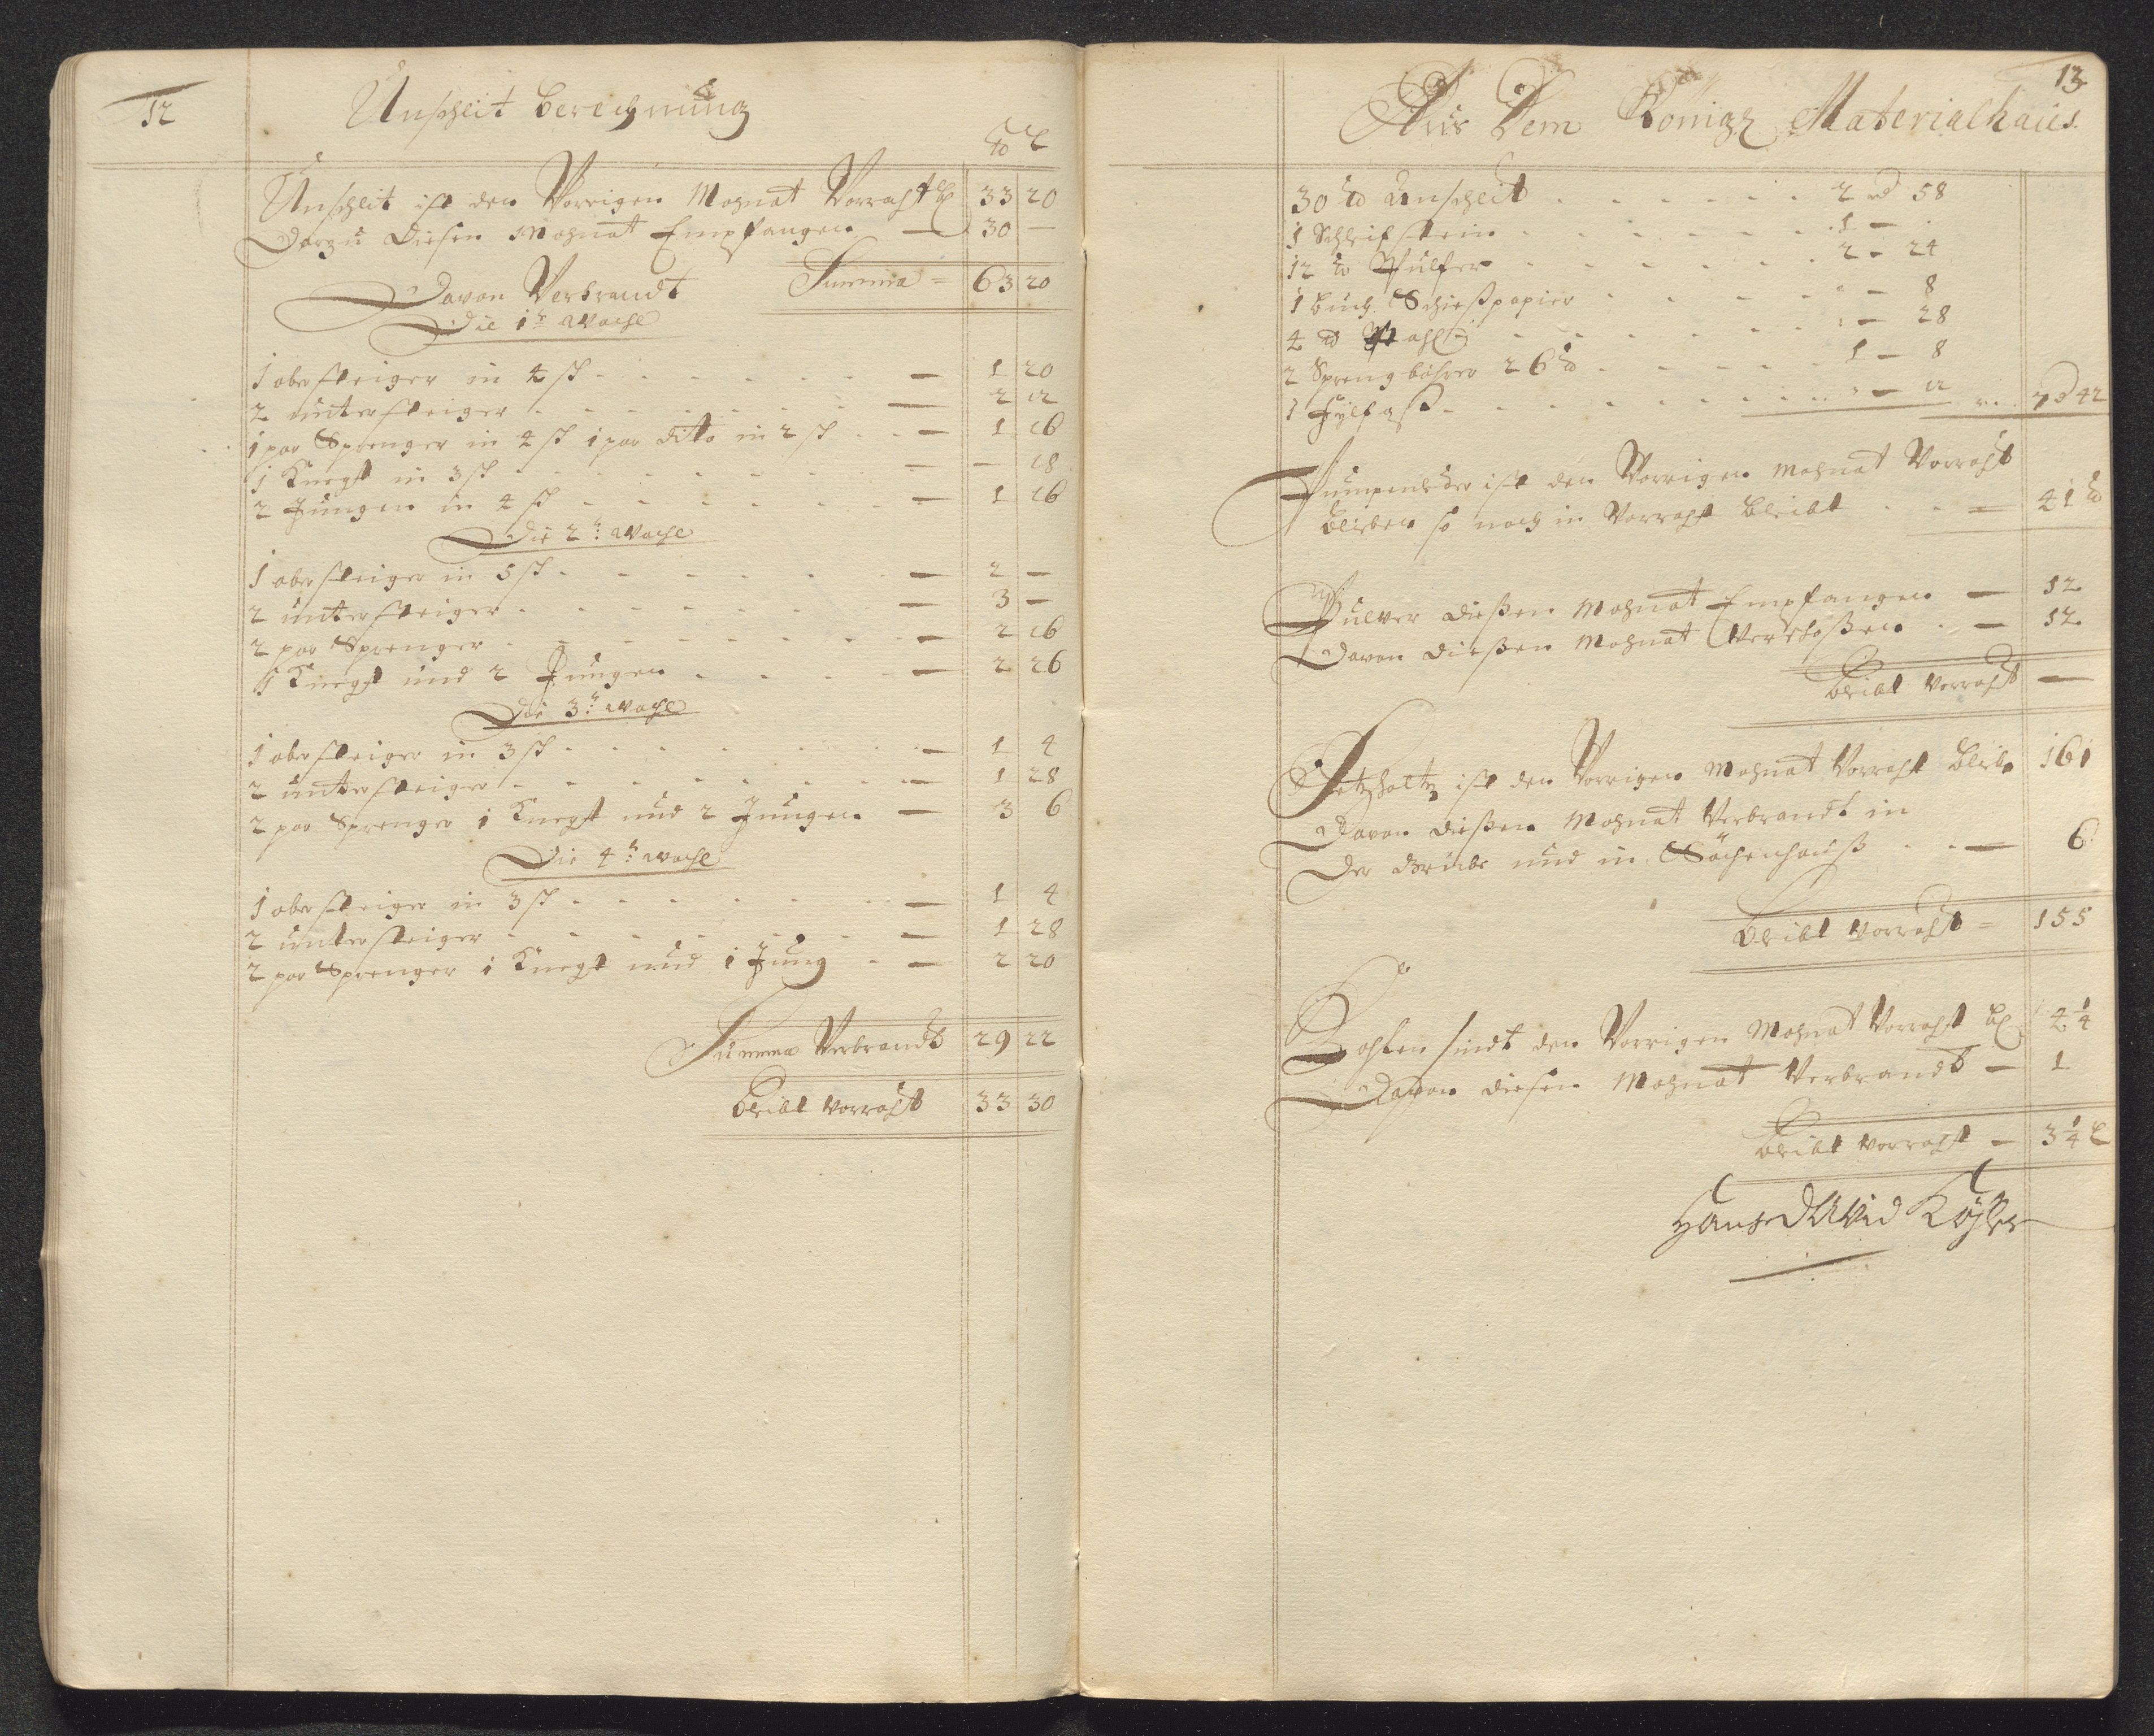 12
Unschleit berechnung
℔ L
Unschleit ist den Vorrigen Mohnat Vorraht 33 20
Darzu Diesen Mohnat Empfangen — 30 —
Summa = 63 20
Davon Verbrandt
Die 1te Woche
1 obersteiger in 4 sch - - - - - - — 1 20
2 untersteiger - - - - - - — 2 12
1 par Sprenger in 4 sch 1 par dito in 2 sch - - — 1 16
1 Knecht in 3 sch - - - - - - — — 18
2 Jungen in 4 sch - - - - - - — 1 16
Die 2te Woche
1 obersteiger in 5 sch - - - - - - — 2 —
2 untersteiger - - - - - - — 3 —
2 par Sprenger - - - - - - — 2 16
1 Knecht und 2 Jungen - - - - — 2 26
Die 3te Woche
1 obersteiger in 3 sch - - - - - - — 1 4
2 untersteiger - - - - - - — 1 28
2 par Sprenger 1 Knecht und 2 Jungen — 3 6
Die 4te Woche
1 obersteiger in 3 sch - - - - - - — 1 4
2 untersteiger - - - - - - — 1 28
2 par Sprenger 1 Knecht und 1 Jung - — 2 20
Summa Verbrandt 29 22
bleibt Vorraht 33 30
13
Aus Dem Königl Materialhaus
30 ℔ Unschleit - - - - - - 2 rd 58
1 Schleifstein - - - - - - 1 —
12 ℔ Pulfer - - - - - - 2 - 24
1 buch Schießpapier - - - - - - — 8
4 ℔ - - - - - - — 28
2 Sprengbohrer 26 ℔ - - - - - 1 — 8
1 - - - - - - — 12 7 rd 42
Pumpenleder ist den Vorrigen Mohnat Vorraht
blieben so noch in Vorraht bleibt - - = 41 ℔
Pulver dießen Mohnat Empfangen — 12
Davon dießen Mohnat Verschoßen - — 12
bleibt Vorraht —
Setzholtz ist den Vorrigen Mohnat Vorraht blieb 161
Davon dießen Mohnat Verbrandt in
Der Grube und in - - — 6
bleibt Vorraht = 155
Kohlen sindt den Vorrigen Mohnat Vorraht 4¼
Davon diesen Mohnat Verbrandt — 1
bleibt Vorraht — 3¼ L
Hans David